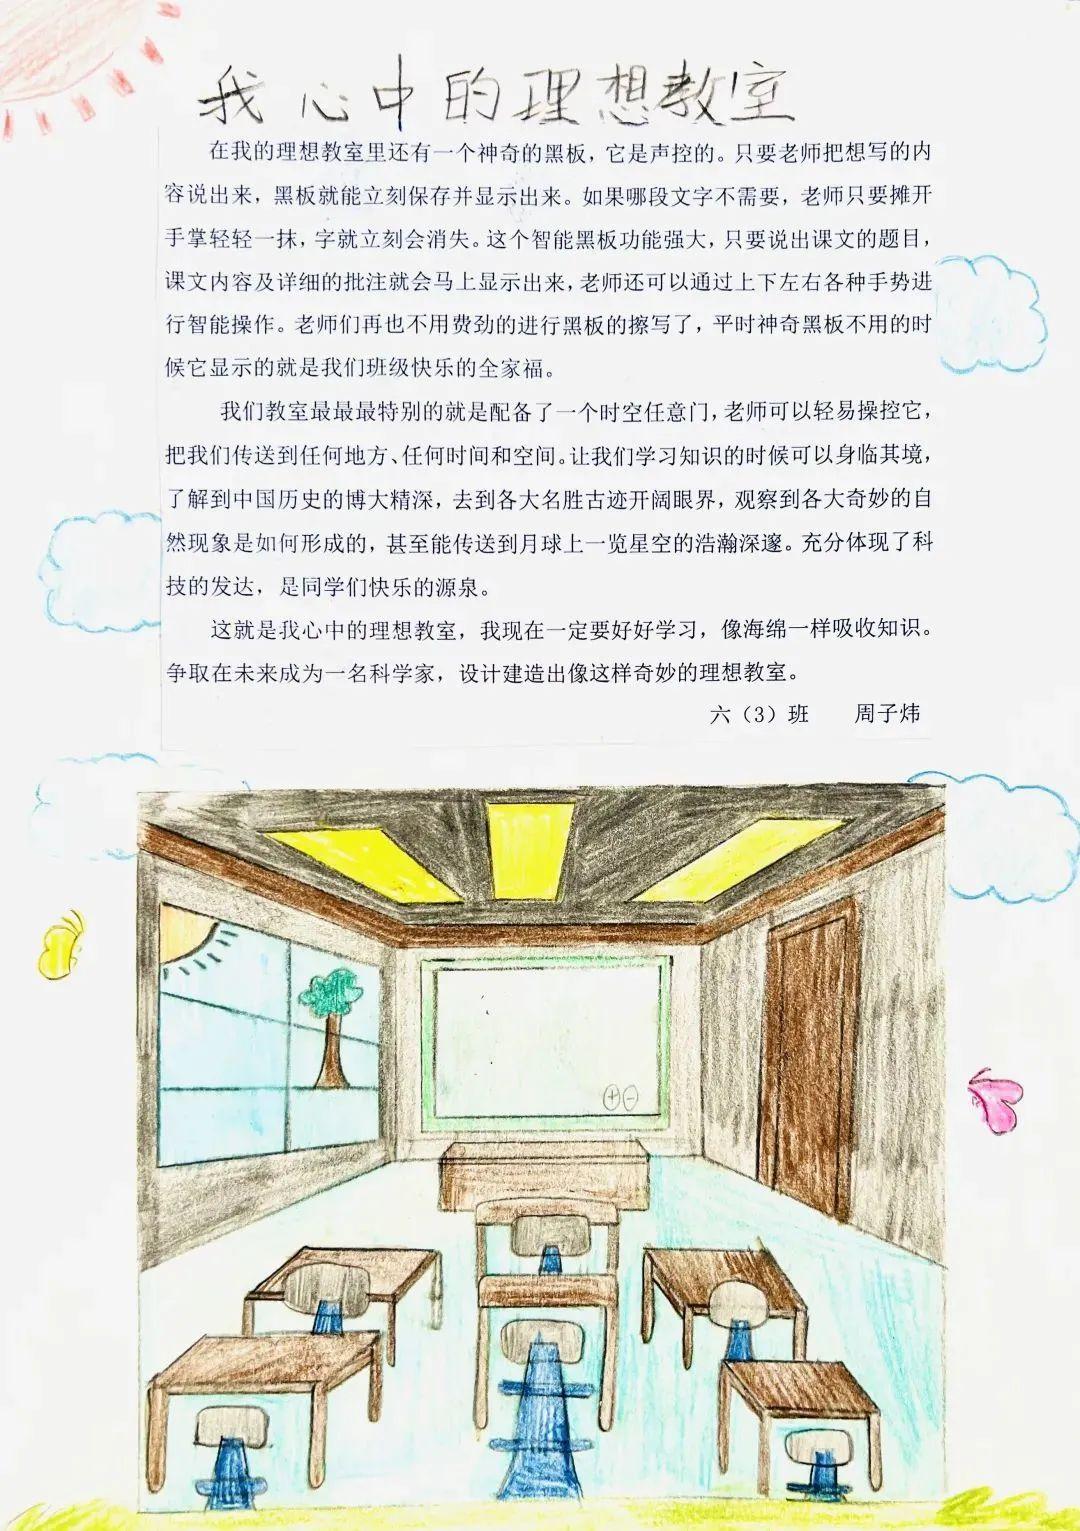 我心中的理想教室
在我的理想教室里还有一个神奇的黑板，它是声控的。只要老师把想写的内
容说出来，黑板就能立刻保存并显示出来。如果哪段文字不需要，老师只要摊开
手掌轻轻一抹，字就立刻会消失。这个智能黑板功能强大，只要说出课文的题目，
课文内容及详细的批注就会马上显示出来，老师还可以通过上下左右各种手势进
行智能操作。老师们再也不用费劲的进行黑板的擦写了，平时神奇黑板不用的时
候它显示的就是我们班级快乐的全家福。
我们教室最最最特别的就是配备了一个时空任意门，老师可以轻易操控它，
把我们传送到任何地方、任何时间和空间。让我们学习知识的时候可以身临其境，
了解到中国历史的博大精深，去到各大名胜古迹开阔眼界，观察到各大奇妙的自
然现象是如何形成的，甚至能传送到月球上一览星空的浩瀚深邃。充分体现了科
技的发达，是同学们快乐的源泉。
这就是我心中的理想教室，我现在一定要好好学习，像海绵一样吸收知识。
争取在未来成为一名科学家，设计建造出像这样奇妙的理想教室。
六（3）班 周子炜
+ -